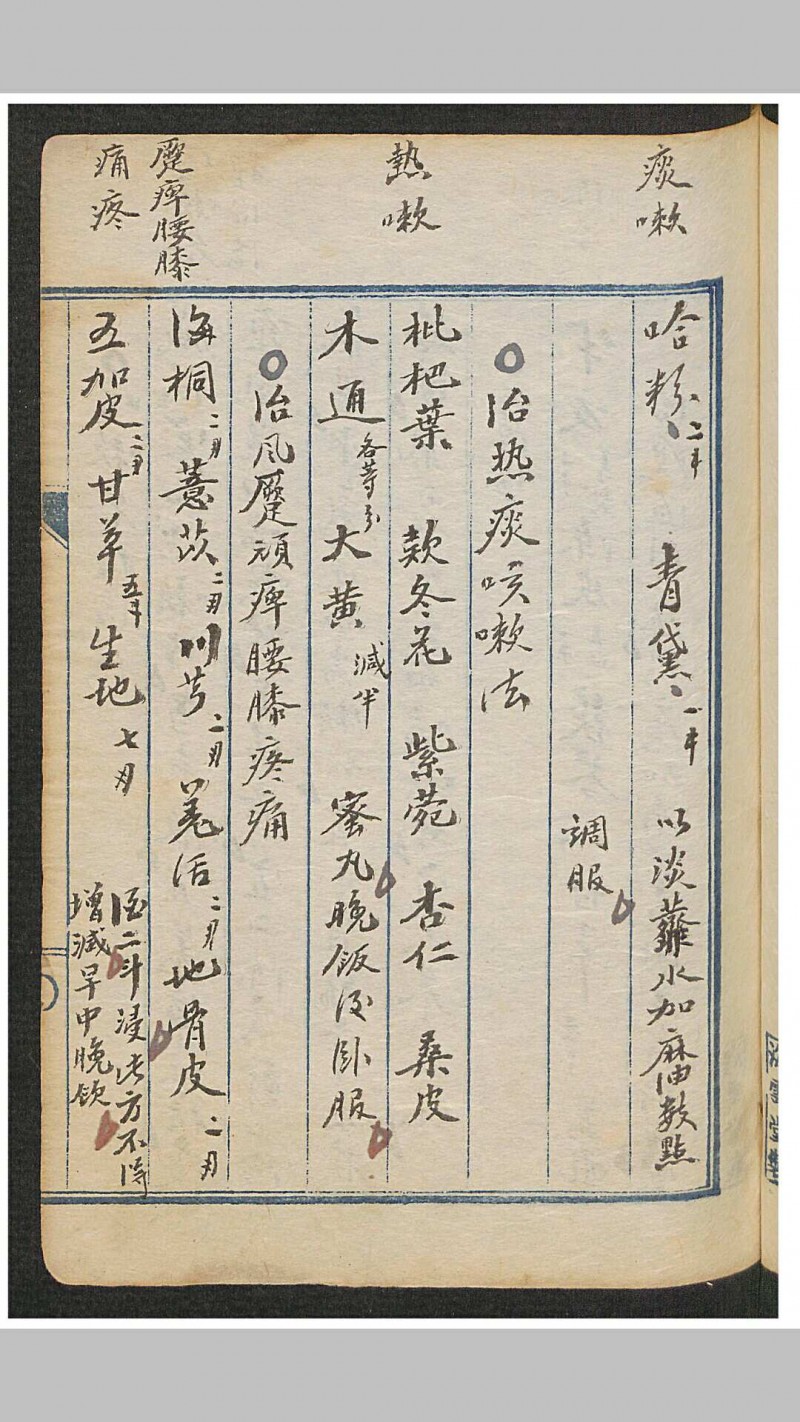 痰嗽
熱嗽
蹷痺腰膝
痛疼
哈粉二Ꮷ 青黛一Ꮷ 以淡虀水加麻油數點
調服
治热痰咳嗽法
枇杷葉 欵冬花 紫菀 杏仁 桑皮
木通各等分 大黄减半 蜜丸晚飯後卧服
治风蹷頑痺腰膝疼痛
海桐二刄 薏苡二刄 川芎二刄 羌活二刄 地骨皮二刄
五加皮二刄 甘草五 生地七刄 酒二斗浸此方不得
增减早中晚飲